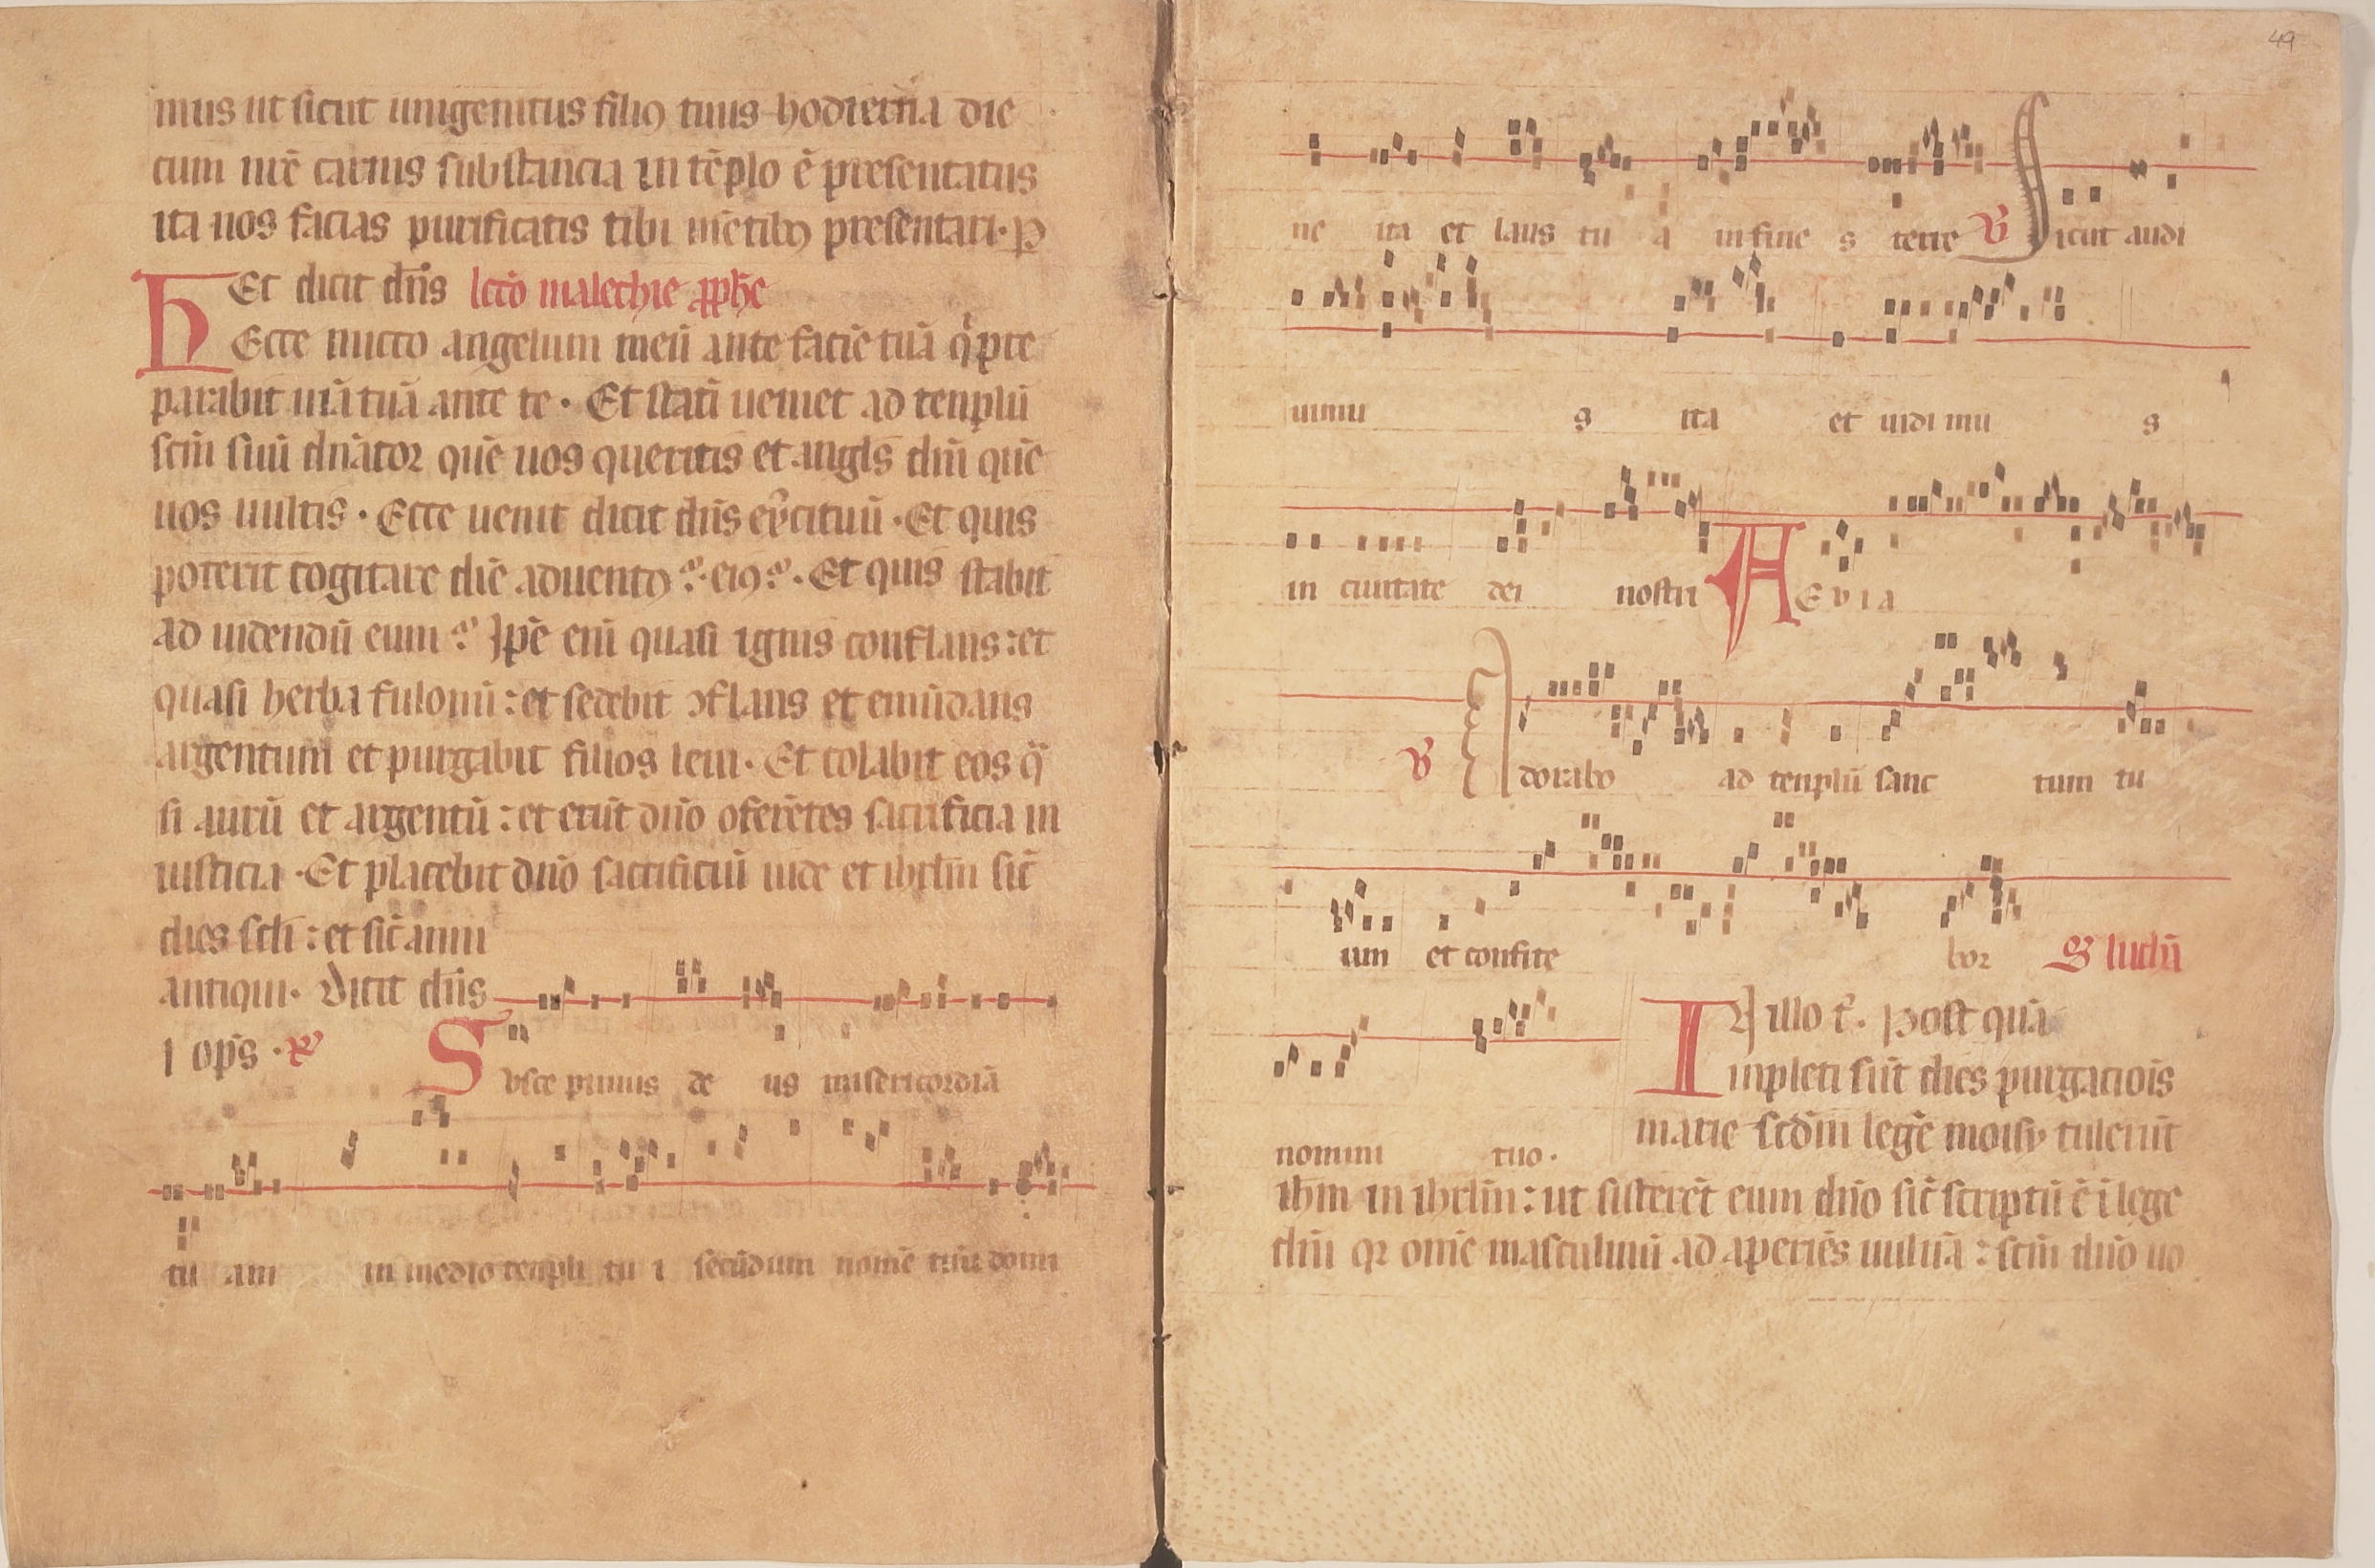 mus ut sicut unigenitus filiꝯ tuus hodierna die
cum nr̄e carnis substancia in tēplo ē presentatus
ita nos facias purificatis tibi mētibꝯ presentari· ꝑ
HEc dicit dn̄s lcc̄o malechie ꝓph̄e
Ecce mitto angelum meū ante faciē tuā q̇ p̱re
parabit uiā tuā ante te · Et statī ueniet ad templū
scm̄ suū dn̄ator quē uos queritis et angls̄ dn̄i quē
uos uultis · Ecce uenit dicit dn̄s ex̾cituū · Et quis
poterit cogitare diē aduentꝯ eiꝯ · Et quis stabit
ad uidendū eum Ip̄e eni̅ quasi ignis conflans : et
quasi herba fulonū : et sedebit ↄflans et emūdans
argentum et purgabit filios leui · Et colabit eos q̄
si aurū et argentū : et erūt dn̄o oferētes sacrificia in
iusticia · Et placebit dn̄o sacrificiū iude et ihrlm̄ sic̄
dies scl̄i : et sic̄ anni
antiqui · Dicit dn̄s
ops̄ ·
Suscepimus de us misericordiā
tu am in medio templi tu i secūdum nomē tuū domi
49
ne ita et laus tu a in fine s terre V Sicut audi
uimu s ita et uidimu s
in ciuitate dei nostri AEVIA
V Adorabo ad templū sanc tum tu
um et confite bor S luchā
nomini tuo ·
IN illo t̄ · Post quā
inpleti sūt dies purgaciōis
marie scd̄m legē moisy tulerūt
ihm̄ in ihrlm̄ : ut sisterēt eum dn̄o sic̄ scriptū ē ī lege
dn̄i qꝛ om̄e masculinū ad aperiēs uuluā : scm̄ dn̄o uo